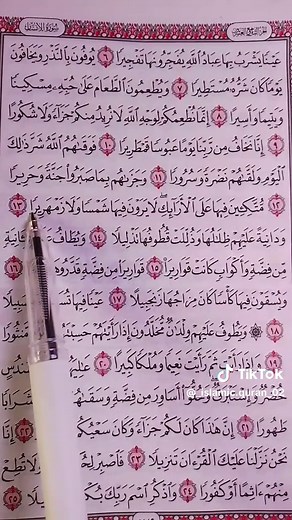 سورة الإنسان
عَيْنًا يَشْرَبُ بِهَا عِبَادُ اللَّهِ يُفَجِّرُونَهَا تَفْجِيرًا ٦ يُوفُونَ بِالنَّذْرِ وَيَخَافُونَ
يَوْمًا كَانَ شَرُّهُ مُسْتَطِيرًا ٧ وَيُطْعِمُونَ الطَّعَامَ عَلَىٰ حُبِّهِ مِسْكِينًا
وَيَتِيمًا وَأَسِيرًا ٨ إِنَّمَا نُطْعِمُكُمْ لِوَجْهِ اللَّهِ لَا نُرِيدُ مِنْكُمْ جَزَاءً وَلَا شُكُورًا
٩ إِنَّا نَخَافُ مِنْ رَبِّنَا يَوْمًا عَبُوسًا قَمْطَرِيرًا ١٠ فَوَقَاهُمُ اللَّهُ شَرَّ ذَٰلِكَ
الْيَوْمِ وَلَقَّاهُمْ نَضْرَةً وَسُرُورًا ١١ وَجَزَاهُمْ بِمَا صَبَرُوا جَنَّةً وَحَرِيرًا
١٢ مُتَّكِئِينَ فِيهَا عَلَى الْأَرَائِكِ لَا يَرَوْنَ فِيهَا شَمْسًا وَلَا زَمْهَرِيرًا ١٣
وَدَانِيَةً عَلَيْهِمْ ظِلَالُهَا وَذُلِّلَتْ قُطُوفُهَا تَذْلِيلًا ١٤ وَيُطَافُ
مِنْ فِضَّةٍ وَأَكْوَابٍ كَانَتْ قَوَارِيرَا ١٥ قَوَارِيرَا مِنْ فِضَّةٍ قَدَّرُوهَا ١٦
وَيُسْقَوْنَ فِيهَا كَأْسًا كَانَ مِزَاجُهَا زَنْجَبِيلًا ١٧ عَيْنًا فِيهَا
۞ وَيَطُوفُ عَلَيْهِمْ وِلْدَانٌ مُخَلَّدُونَ إِذَا رَأَيْتَهُمْ حَسِبْتَهُمْ مَنْثُورًا
١٩ وَإِذَا رَأَيْتَ ثَمَّ رَأَيْتَ نَعِيمًا وَمُلْكًا كَبِيرًا ٢٠
أَسَاوِرَ مِنْ فِضَّةٍ وَسَقَاهُمْ
طَهُورًا ٢١ إِنَّ هَٰذَا كَانَ لَكُمْ جَزَاءً وَكَانَ سَعْيُكُمْ
نَحْنُ نَزَّلْنَا عَلَيْكَ الْقُرْآنَ تَنْزِيلًا ٢٣ فَاصْبِرْ وَلَا تُطِعْ
مِنْهُمْ آثِمًا أَوْ كَفُورًا ٢٤ وَاذْكُرِ اسْمَ رَبِّكَ ٢٥
TikTok
@_islamic.quran_02